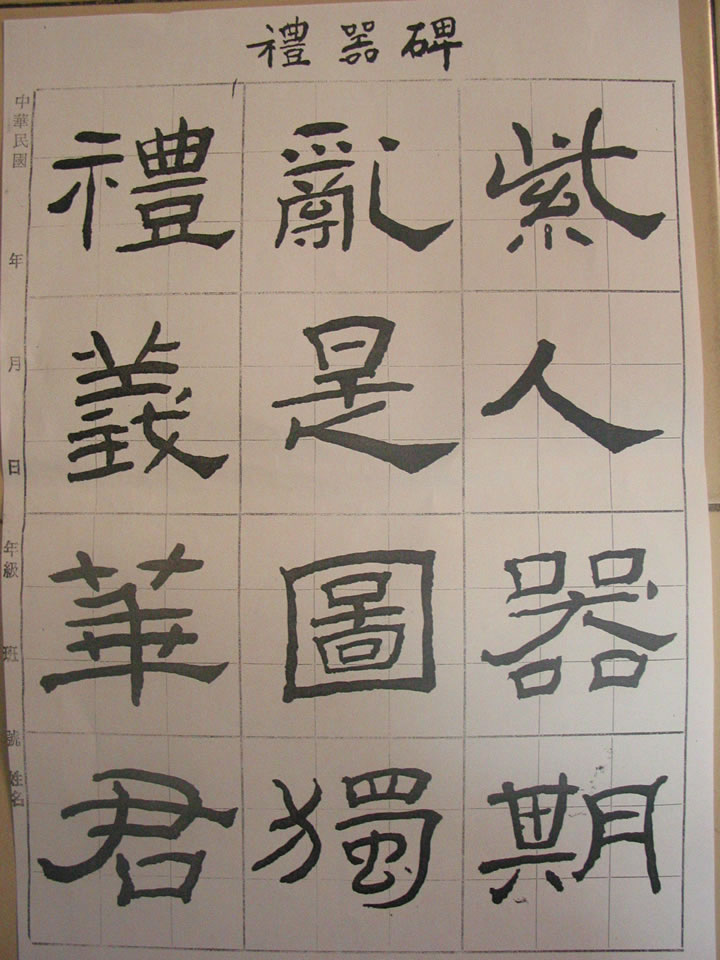 禮器碑
紫人器期
亂是圖獨
禮義華君
中華民國 年 月 日 年級 班 號 姓名